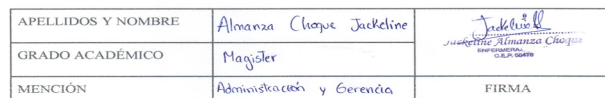 APELLIDOS Y NOMBRE Almanza Choque Jackeline
Jackeline Almanza Choque
ENFERMERA
GRADO ACADÉMICO Magister
MENCIÓN Administración y Gerencia FIRMA